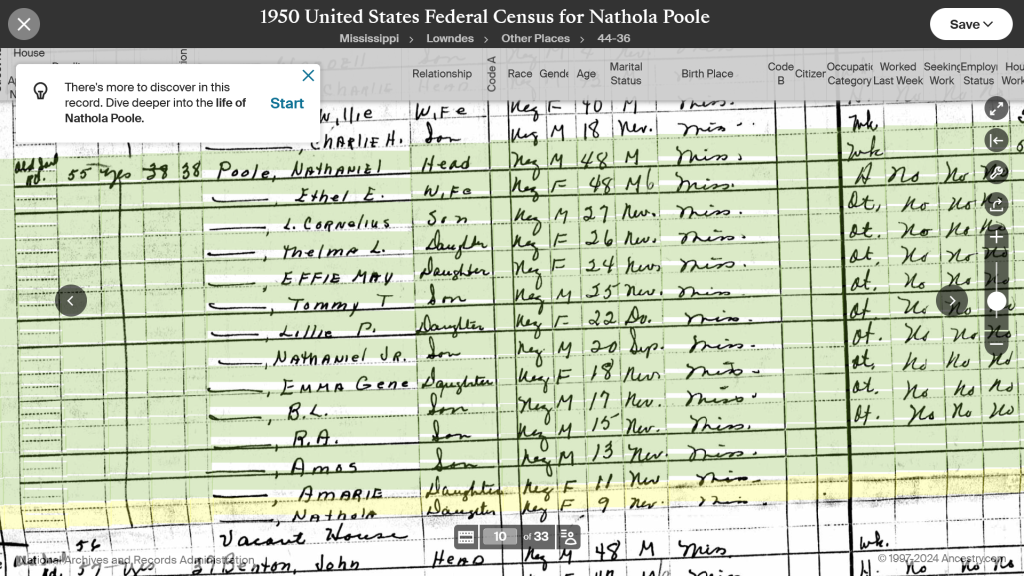 1950 United States Federal Census for Nathola Poole
Mississippi > Lowndes > Other Places > 44-36
Save
House
There's more to discover in this
record. Dive deeper into the life of
Nathola Poole.
Start
Relationship Code A Race Gende Age Marital Status Birth Place Code B Citizer Occupati Category Worked Last Week Seeking Work Employ Status Hou Work
Willie W,Fe Neg F 40 M Miss.
CHARLIE H. Son Neg M 18 Nev. Miss. Wk
Rd. 55 yes 38 38 Poole, NATHANIEL Head Neg M 48 M Miss. Wk
——, Ethel E. W,Fe Neg F 48 M Miss. H No No No
——, L. CORNELIUS Son Neg M 27 Nev. Miss. Ot. No No No
——, Thelma L. Daughter Neg F 26 Nev. Miss. Ot. No No No
——, EFFIE MAY Daughter Neg F 24 Nev. Miss. Ot. No No No
——, Tommy T Son Neg M 25 Nev. Miss. Ot. No No No
——, Lillie P. Daughter Neg F 22 Do. Miss. Ot No No No
——, NATHANIEL JR. Son Neg M 20 Sep. Miss. Ot. No No No
——, EMMA Gene Daughter Neg F 18 Nev. Miss. Ot. No No No
——, B.L. Son Neg M 17 Nev. Miss. Ot. No No No
——, R.A. Son Neg M 15 Nev. Miss. Ot. No No No
——, Amos Son Neg M 13 Nev. Miss.
——, AMARIE Daughter Neg F 11 Nev Miss.
——, NATHOLA Daughter Neg F 9 Nev. Miss.
56 Vacant House
57 yes 39 Benton, John HEAD Neg M 48 M Miss. Wk.
10 of 33
National Archives and Records Administration
© 1997-2024 Ancestry.com